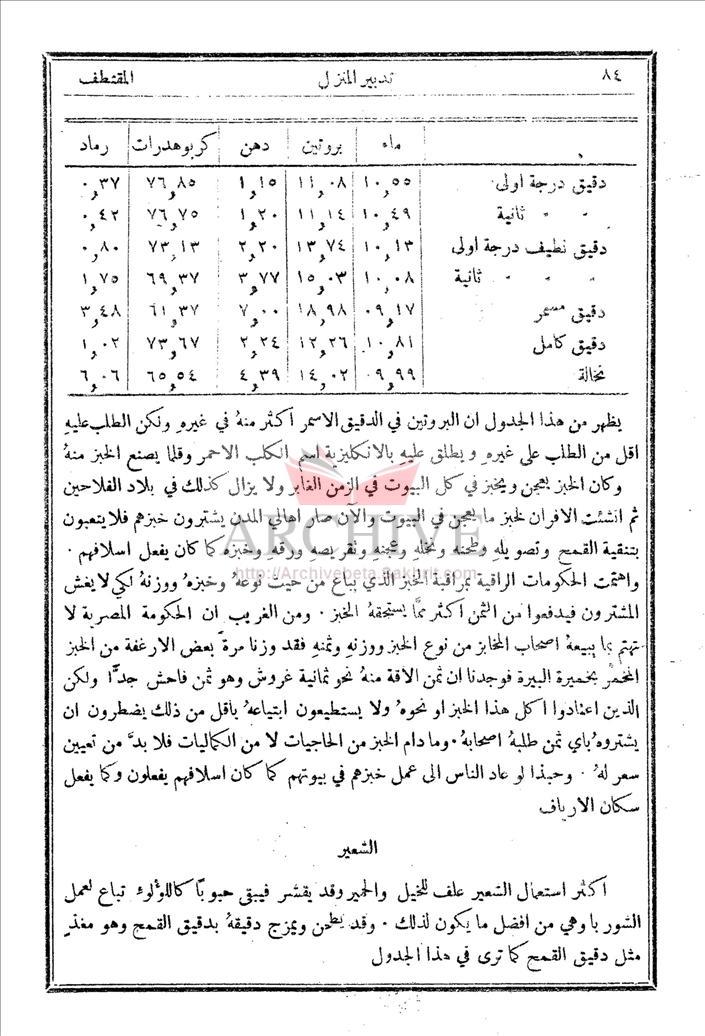 ٨٤ تدبير المنزل المقتطف
ماء بروتين دهن كربوهدرات رماد
دقيق درجة اولى ١٠,٥٥ ١١,٠٨ ١,١٥ ٧٦,٨٥ ٠,٣٧
" " ثانية ١٠,٤٩ ١١,١٤ ١,٢٠ ٧٦,٧٥ ٠,٤٢
دقيق نطيف درجة اولى ١٠,١٣ ١٣,٧٤ ٢,٢٠ ٧٣,١٣ ٠,٨٠
" " " ثانية ١٠,٠٨ ١٥,٠٣ ٣,٧٧ ٦٩,٣٧ ١,٧٥
دقيق مسمر ٠٩,١٧ ١٨,٩٨ ٧,٠٠ ٦١,٣٧ ٣,٤٨
دقيق كامل ١٠,٨١ ١٢,٢٦ ٢,٢٤ ٧٣,٦٧ ١,٠٢
نخالة ٠٩,٩٩ ١٤,٠٢ ٤,٣٩ ٦٥,٥٤ ٦,٠٦
يظهر من هذا الجدول ان البروتين في الدقيق الاسمر اكثر منهُ في غيرهِ ولكن الطلب عليهِ
اقل من الطلب على غيرهِ ويطلق عليهِ بالانكليزية اسم الكلب الاحمر وقلما يصنع الخبز منهُ
وكان الخبز يعجن ويخبز في كل البيوت في الزمن الغابر ولا يزال كذلك في بلاد الفلاحين
ثم انشئت الافران لخبز ما يعجن في البيوت والآن صار اهالي المدن يشترون خبزهم فلا يتعبون
بتنقية القمح وتصويلهِ وطحنه ونخلهِ وعجنهِ وتقريصه ورقهِ وخبزه كما كان يفعل اسلافهم .
واهتمت الحكومات الراقية بمراقبة الخبز الذي يباع من حيث نوعهُ وخبزهُ ووزنهُ لكي لا يغش
المشترون فيدفعوا من الثمن اكثر ممَّا يستحقهُ الخبز . ومن الغريب ان الحكومة المصرية لا
تهتم بما يبيعهُ اصحاب المخابز من نوع الخبز ووزنهِ وثمنهِ فقد وزنا مرةً بعض الارغفة من الخبز
المخمَّر بخميرة البيرة فوجدنا ان ثمن الاقة منهُ نحو ثمانية غروش وهو ثمن فاحش جدًّا ولكن
الذين اعتادوا اكل هذا الخبز او نحوهُ ولا يستطيعون ابتياعهُ باقل من ذلك يضطرون ان
يشتروهُ باي ثمن طلبهُ اصحابهُ . وما دام الخبز من الحاجيات لا من الكماليات فلا بدَّ من تعيين
سعر لهُ . وحبذا لو عاد الناس الى عمل خبزهم في بيوتهم كما كان اسلافهم يفعلون وكما يفعل
سكان الارياف
الشعير
اكثر استعمال الشعير علف للخيل والحمير وقد يقشر فيبقى حبوبًا كاللؤلوء تباع لعمل
الشوربا وهي من افضل ما يكون لذلك . وقد يطحن ويمزج دقيقهُ بدقيق القمح وهو مغذٍّ
مثل دقيق القمح كما ترى في هذا الجدول
ARCHIVE
http://Archivebeta.Sakhrit.com